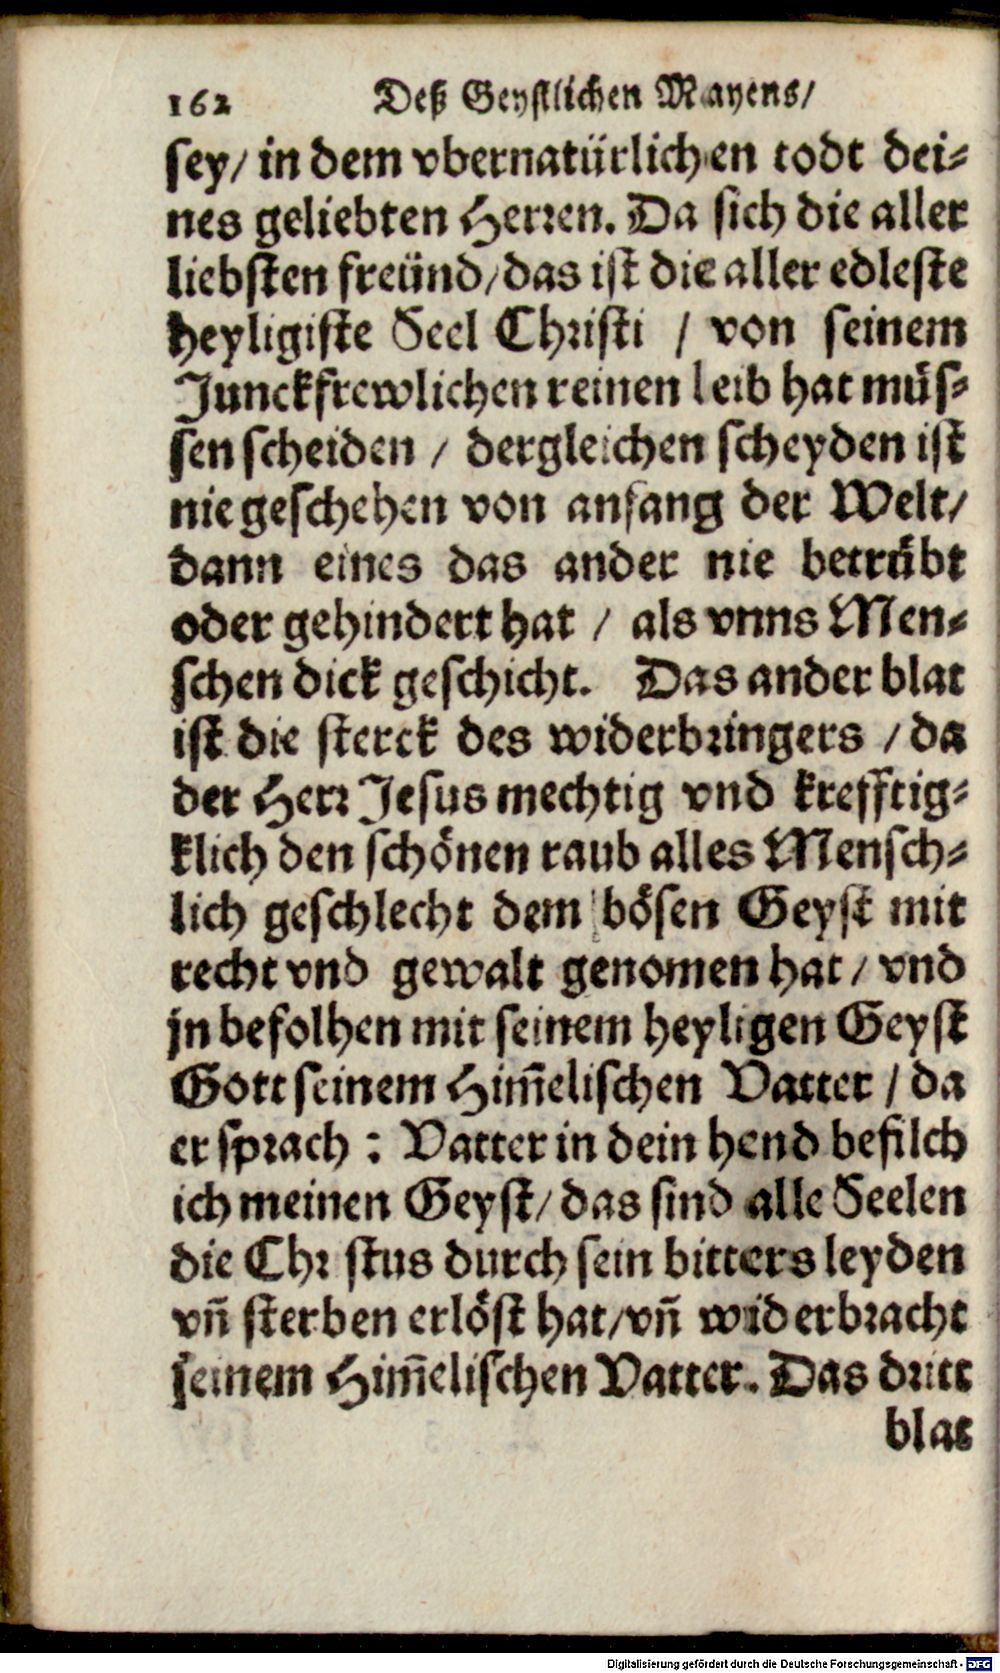 162 Deß Geystlichen Mayens/
sey/ in dem vbernatürlichen todt dei-
nes geliebten Herren. Da sich die aller
liebsten freünd/ das ist die aller edleste
heyligiste Seel Christi / von seinem
Junckfrewlichen reinen leib hat müs-
sen scheiden / dergleichen scheyden ist
nie geschehen von anfang der Welt/
dann eines das ander nie betrübt
oder gehindert hat / als vnns Men-
schen dick geschicht. Das ander blat
ist die sterck des widerbringers / da
der Herr Jesus mechtig vnd krefftig-
klich den schönen raub alles Mensch-
lich geschlecht dem bösen Geyst mit
recht vnd gewalt genomen hat / vnd
jn befolhen mit seinem heyligen Geyst
Gott seinem Him̃elischen Vatter / da
er sprach : Vatter in dein hend befilch
ich meinen Geyst/ das sind alle Seelen
die Chr stus durch sein bitters leyden
vñ sterben erlöst hat/ vñ widerbracht
seinem Him̃elischen Vatter. Das dritt
blat
Digitalisierung gefördert durch die Deutsche Forschungsgemeinschaft - DFG